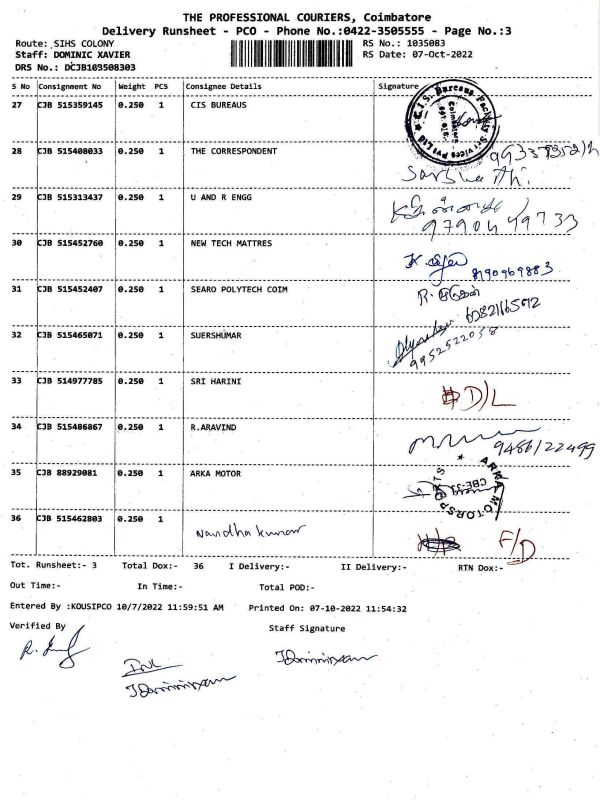 THE PROFESSIONAL COURIERS, Coimbatore
Delivery Runsheet - PCO - Phone No.:0422-3505555 - Page No.:3
Route: SIHS COLONY RS No.: 1035083
Staff: DOMINIC XAVIER RS Date: 07-Oct-2022
DRS No.: DCJB103508303
S No Consignment No Weight PCS Consignee Details Signature
27 CJB 515359145 0.250 1 CIS BUREAUS
28 CJB 515408033 0.250 1 THE CORRESPONDENT
29 CJB 515313437 0.250 1 U AND R ENGG
9790449733
30 CJB 515452760 0.250 1 NEW TECH MATTRES
8190969883
31 CJB 515452407 0.250 1 SEARO POLYTECH COIM
32 CJB 515465071 0.250 1 SUERSHUMAR
9952522058
33 CJB 514977785 0.250 1 SRI HARINI D/L
34 CJB 515486867 0.250 1 R.ARAVIND
9486122499
35 CJB 88929081 0.250 1 ARKA MOTOR
ARKA MOTORSPORTS
36 CJB 515462803 0.250 1
Nandha kumar F/D
Tot. Runsheet:- 3 Total Dox:- 36 I Delivery:- II Delivery:- RTN Dox:-
Out Time:- In Time:- Total POD:-
Entered By :KOUSIPCO 10/7/2022 11:59:51 AM Printed On: 07-10-2022 11:54:32
Verified By Staff Signature